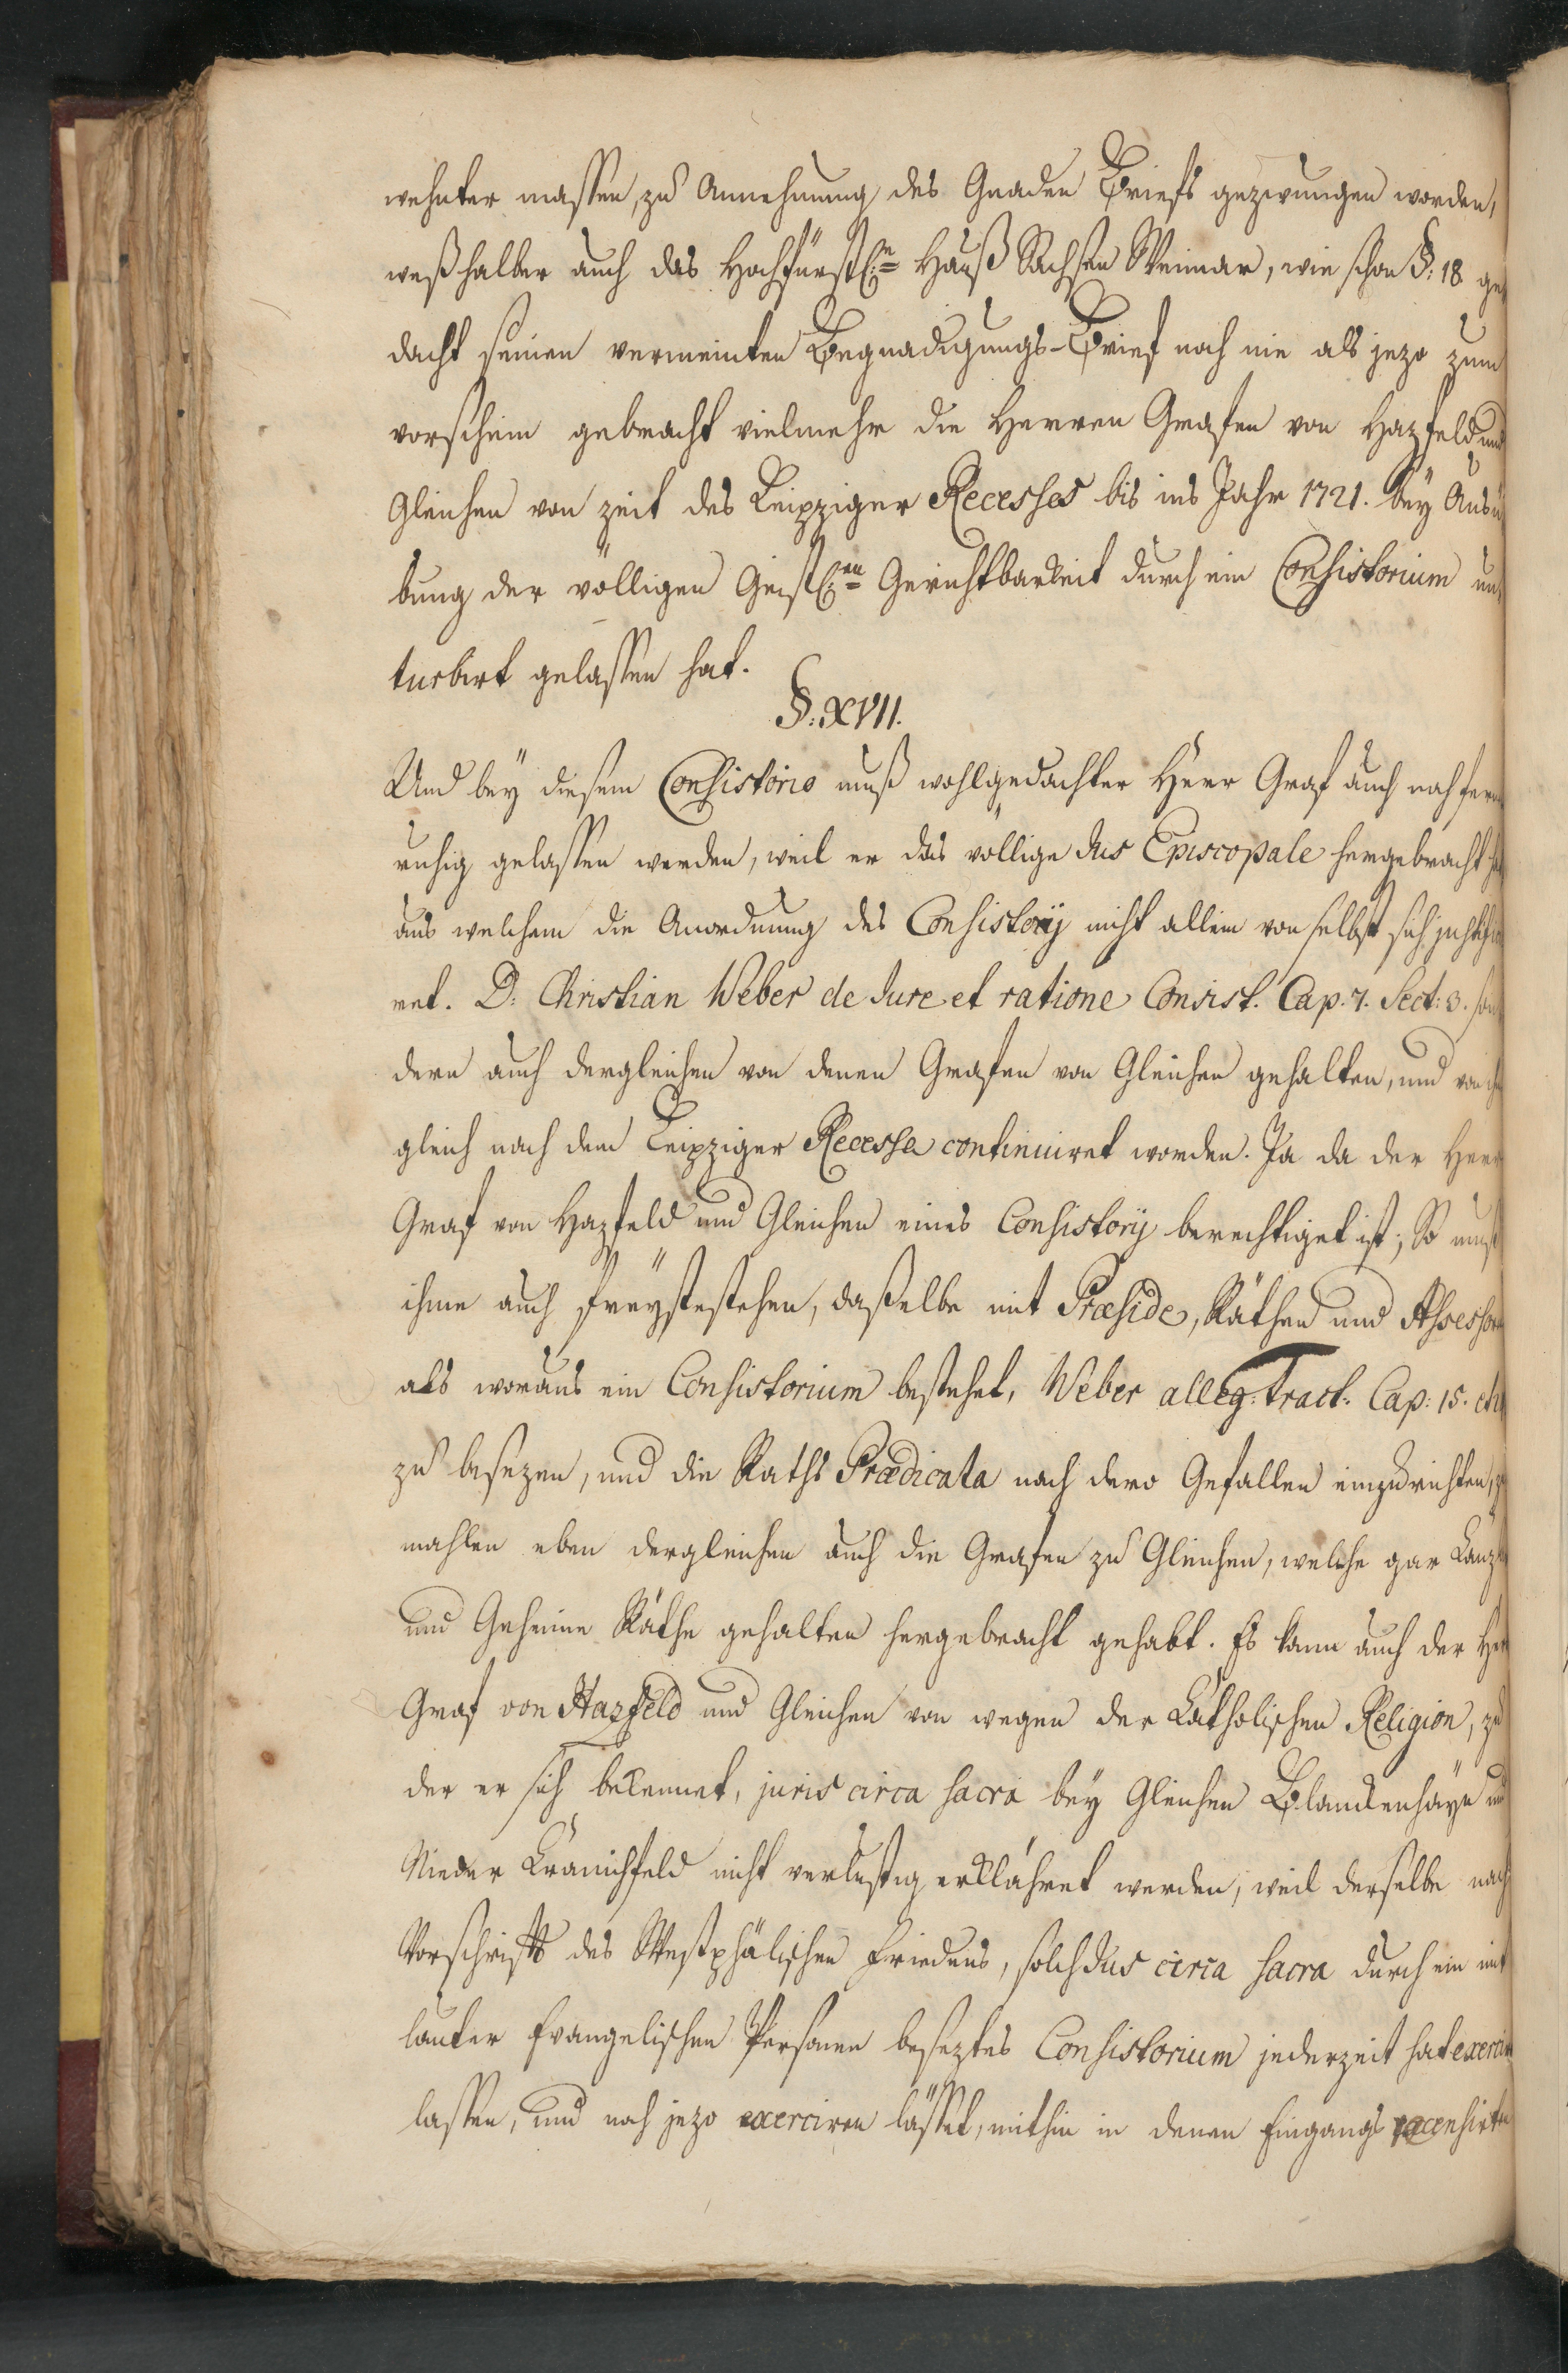 wehnter massen, zu Annehmung des Gnaden Briefs gezwungen worden,
weßhalber auch das Hochfürstl:e Hauß Sachsen Weimar, wie schon §: 18 ge
dacht seinen vermeinten Begnadigungs-Brief noch nie als jezo zum
vorschein gebracht vielmehr die Herren Grafen von Hazfeld und
Gleichen von zeit des Leipziger Recesses bis ins Jahr 1721. bey Ausü
bung der völligen Geistl:en Gerichtbarkeit durch ein Consistorium un
turbirt gelassen hat.
§: XVII.
Und bey diesem Consistorio muß wohlgedachter Herr Graf auch noch fern
ruhig gelassen werden, weil er das völlige Jus Episcopale hergebracht hat
aus welchem die Anordnung des Consistorij nicht allein von selbst sich justifici
ret. D. Christian Weber de Jure et ratione Consist. Cap. 7. Sect: 3. son
dern auch dergleichen von denen Grafen von Gleichen gehalten, und von ihm
gleich nach dem Leipziger Recesse continuiret worden. Ja da der Herr
Graf von Hazfeld und Gleichen eines Consistorij berechtiget ist; So muß
ihme auch freystestehen, daßelbe mit Præside, Räthen und Assessorn
als woraus ein Consistorium bestehet, Weber alleg. Tract. Cap: 15.
zu besezen, und die Raths Prædicata nach dero Gefallen einzurichten, zu
mahlen eben dergleichen auch die Grafen zu Gleichen, welche gar Canzler
und Geheime Räthe gehalten hergebracht gehabt. Es kann auch der Herr
Graf von Hazfeld und Gleichen von wegen der Catholischen Religion, zu
der er sich bekennet, juris circa sacra bey Gleichen Blanckenhäyn und
Nieder Cranichfeld nicht verlustig erklähret werden, weil derselbe nach
Vorschrifft des Westphälischen Friedens, solch Jus circa sacra durch ein mit
lauter Evangelischen Personen beseztes Consistorium jederzeit hat exerciren
lassen, und noch jezo exerciren lässet, mithin in denen Eingangs recensirten